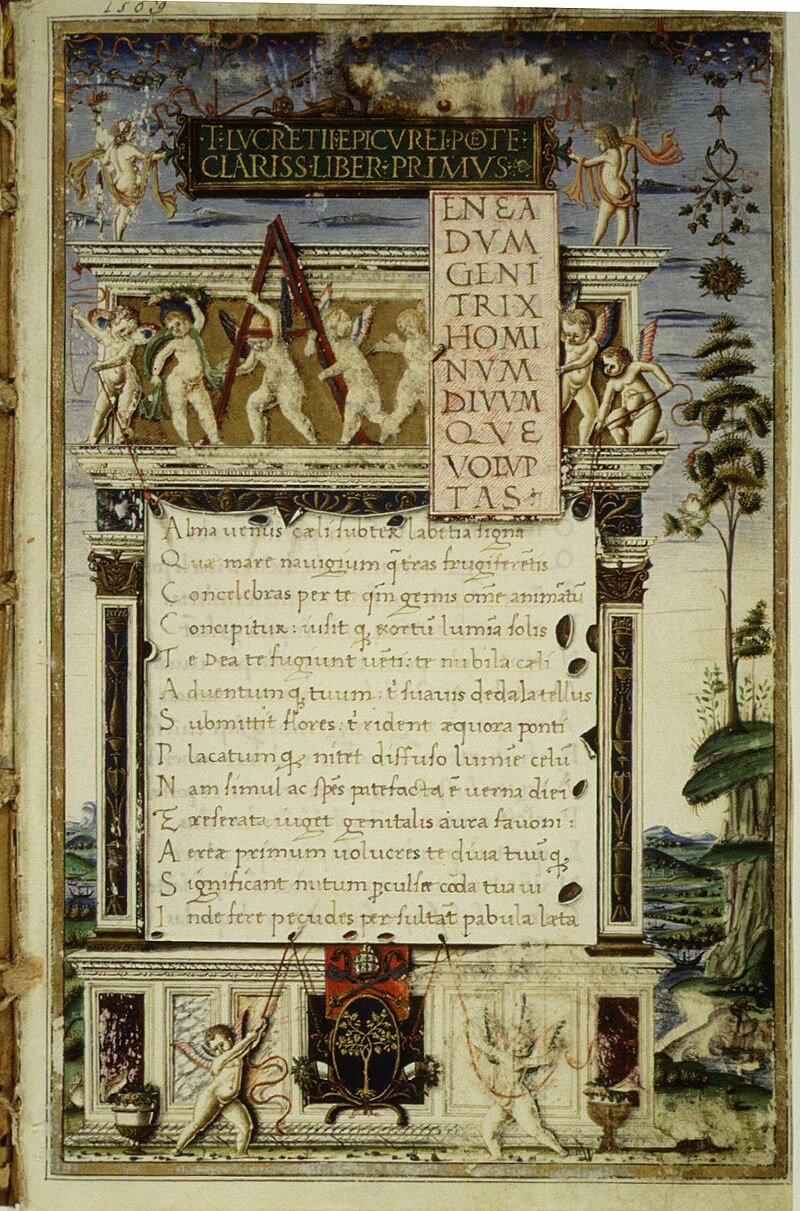 1569
T·LVCRETII·EPICVREI·POETE·
CLARISS·LIBER·PRIMVS·
A
ENEA
DVM
GENI
TRIX
HOMI
NVM
DIVVM
QVE
VOLVP
TAS
Alma uenus cæli subter labētia signa
Quæ mare nauigium q̄ tras frugiferētis
Concelebras per te qm̄ genus om̄e animātū
Concipitur: uisit q, exortū lumīa solis
Te Dea te fugiunt uēti: te nubila cæli
Aduentum q, tuum: t̄ suauis dedala tellus
Submittit flores: t̄ rident æquora ponti
Placatum q, nitet diffuso lumīe celū
Nam simul ac spēs patefacta ē uerna diei
Et reserata uiget genitalis aura fauoni:
Aereæ primum uolucres te diua tuū q,
Significant nutum pculsæ cōda tua ui
Inde fere pecudes per sultāt pabula læta